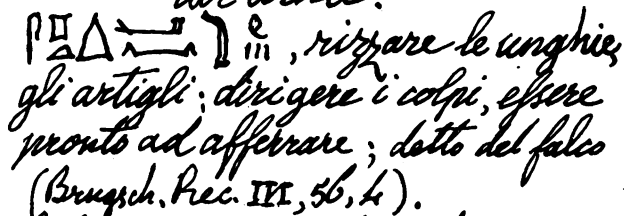 , rizzare le unghie,
gli artigli; dirigere i colpi, essere
pronto ad afferrare; detto del falco
(Brugsch. Rec. III, 56, 4).